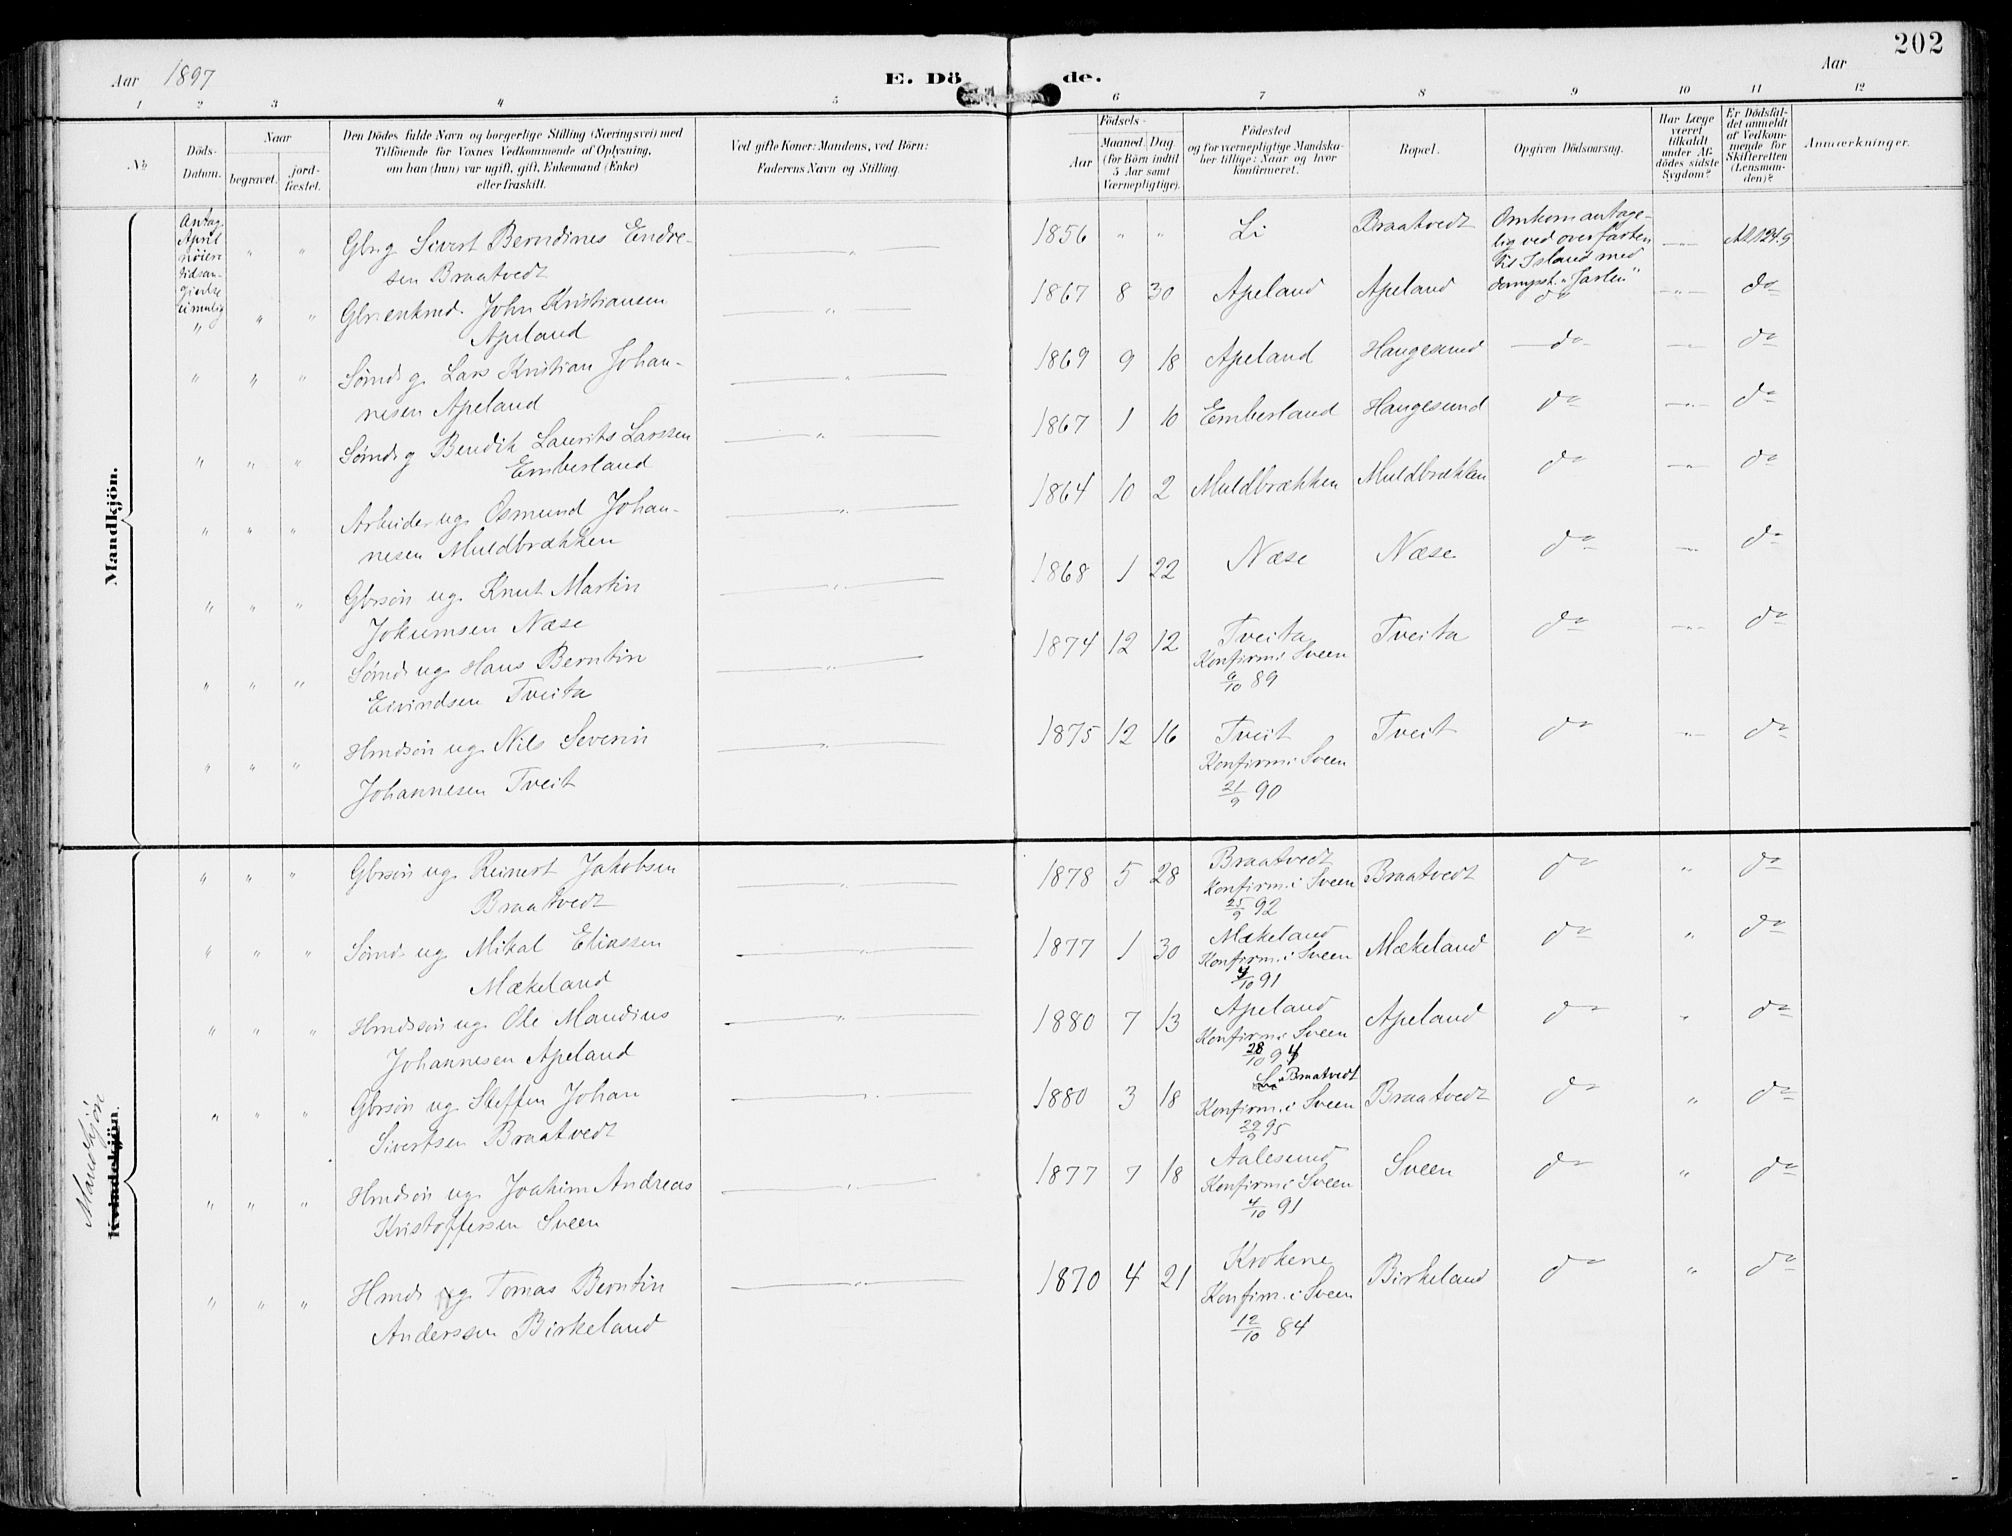 202
Aar 1897
E. Dö de.
Aar
1 2 3 4 5 6 7 8 9 10 11 12
No
Döds-Datum.
Naar
begravet.
jord-fæstet.
Den Dödes fulde Navn og borgerlige Stilling (Næringsvei) med
Tilföiende for Voxnes Vedkommende af Oplysning,
om han (hun) var ugift, gift, Enkemand (Enke)
eller fraskilt.
Ved gifte Koner: Mandens, ved Börn:
Faderens Navn og Stilling.
Födsels-
Aar
Maaned Dag
(for Börn indtil
5 Aar samt
Værnepligtige).
Födested
og for værnepligtige Mandska-
ber tillige: Naar og hvor
konfirmeret.
Bopæl.
Opgiven Dödsaarsag.
Har Læge
været
tilkaldt
under Af-
dödes sidste
Sygdom?
Er Dödsfal-
det anmeldt
af Vedkom-
mende for
Skifteretten
(Lensman-
den)?
Anmærkninger.
Mandkjön.
Antag.
April
nøiere
tidsan-
givelse
umulig
" " Gbr g Sivert Berndines Endre-
sen Braatvedt
" 1856 " " Li Braatvedt
Omkom antage-
lig ved overfarten
til Island med
dampsk. "Jarlen"
" Al 124.5
" " " Gbr enkmd. John Kristiansen
Apeland
" 1867 8 30 Apeland Apeland do " do
" " " Sømd g Lars Kristian Johan-
nesen Apeland
" 1869 9 18 Apeland Haugesund do " do
" " " Sømd g Bendik Laurits Larssen
Emberland
" 1867 1 10 Emberland Haugesund do " do
" " " Arbeider ug. Osmund Johan-
nesen Muldbrækken
" 1864 10 2 Muldbrækken Muldbrækken do " do
" " " Gbrsøn ug. Knut Martin
Jokumsen Næse
" 1868 1 22 Næse Næse do " do
" " " Sømd ug Hans Berntin
Eivindsen Tveita
" 1874 12 12 Tveita
Konfirm i Sveen
6/10 89
Tveita do " do
" " " Hmdsøn ug. Nils Severin
Johannesen Tveit
" 1875 12 16 Tveit
Konfirm i Sveen
21/9 90
Tveit do " do
Kvindekjön.
Mandkjön
" " " Gbrsøn ug. Reinert Jakobsen
Braatvedt
" 1878 5 28 Braatvedt
Konfirm. i Sveen
25/9 92
Braatvedt do " do
" " " Sømd ug. Mikal Eliassen
Mækeland
" 1877 1 30 Mækeland
Konfirm. i Sveen
4/10 91
Mækeland do " do
" " " Hmdssøn ug. Ole Mandius
Johannesen Apeland
" 1880 7 13 Apeland
Konfirm i Sveen
28/10 94
Apeland do " do
" " " Gbrsøn ug Steffen Johan
Sivertsen Braatvedt
" 1880 3 18 Li Braatvedt
Konfirm. i Sveen
29/9 95
Braatvedt do " do
" " " Hmdsøn ug. Joakim Andreas
Kristoffersen Sveen
" 1877 7 18 Aalesund
Konfirm i Sveen
4/10 91
Sveen do " do
" " " Hmds g Tomas Berntin
Anderssen Birkeland
" 1870 4 21 Krokene
Konfirm. i Sveen
12/10 84
Birkeland do " do